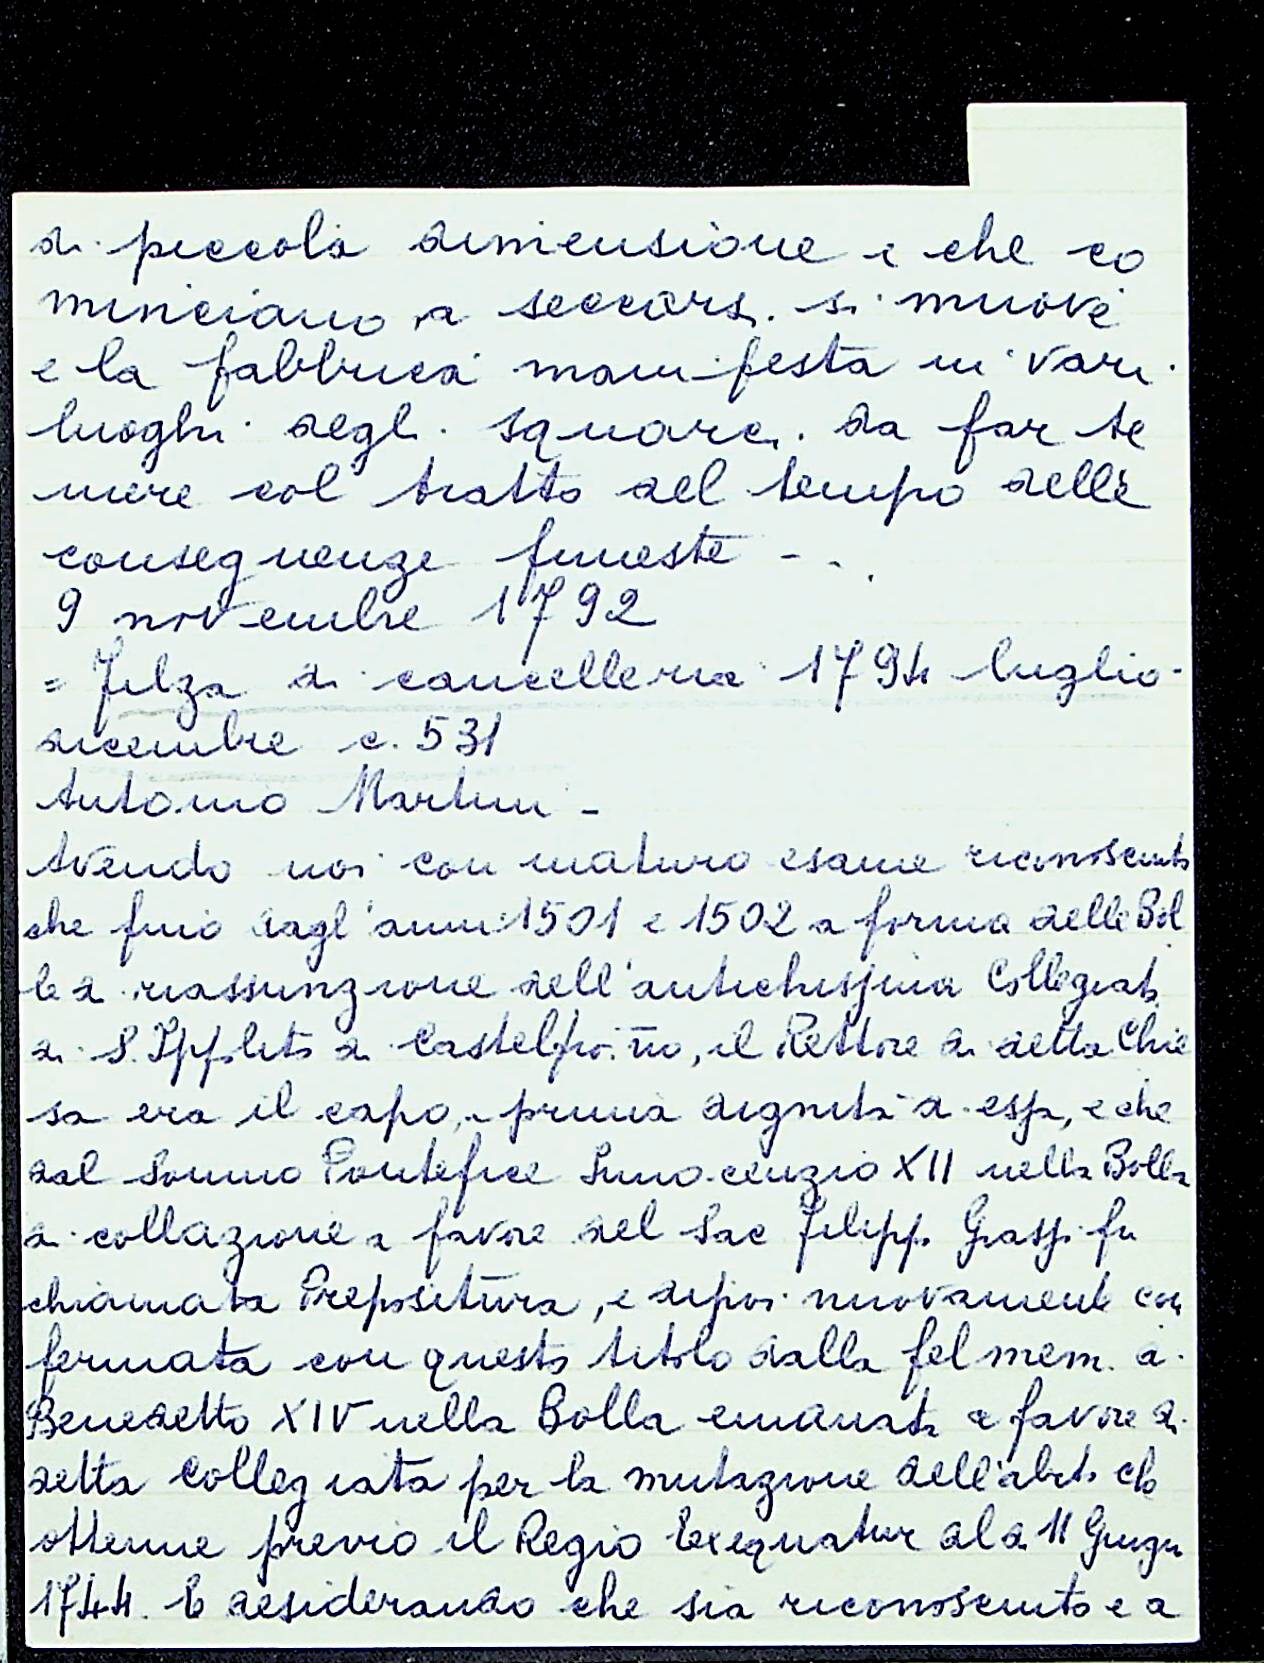 di piccola dimensione e che co
minciano a seccarsi si muove
e la fabbrica manifesta in varii
luoghi degli squarci da far te
mere col tratto del tempo delle
conseguenze funeste - . .
9 novembre 1792
= Filza di cancelleria 1794 luglio-
dicembre c. 531
Antonio Martini -
Avendo noi con maturo esame riconosciuto
che fino dagl'anni 1501 e 1502 a forma delle Bol
le di riassunzione dell'antichissima Collegiata
di S. Ippolito di Castelfio.no, il Rettore di detta Chie
sa era il capo, e prima dignità di essa, e che
dal Sommo Pontefice Innocenzio XII nella Bolla
di collazione a favore del Sac Filippo Grassi fu
chiamata Prepositura, e dipoi nuovamente con
fermata con questo titolo dalla fel mem. di
Benedetto XIV nella Bolla emanata a favore di
detta Collegiata per la mutazione dell'abito che
ottenne previo il Regio Exequatur al dì 11 Giugno
1744. E desiderando che sia riconosciuto e a